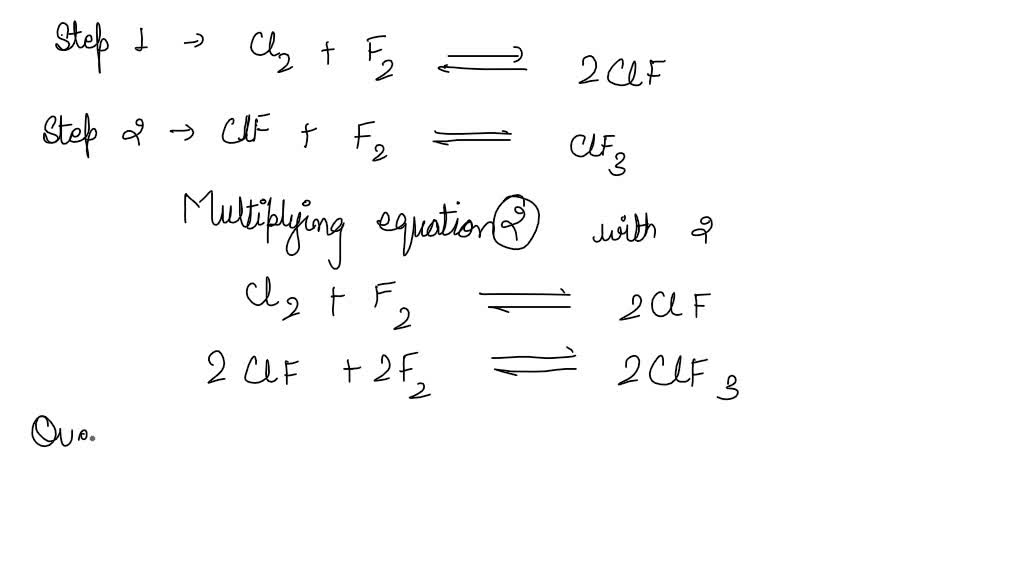 Step 1 → Cl2 + F2 ⇌ 2ClF
Step 2 → ClF + F2 ⇌ ClF3
Multiplying equation 2 with 2
Cl2 + F2 ⇌ 2ClF
2ClF + 2F2 ⇌ 2ClF3